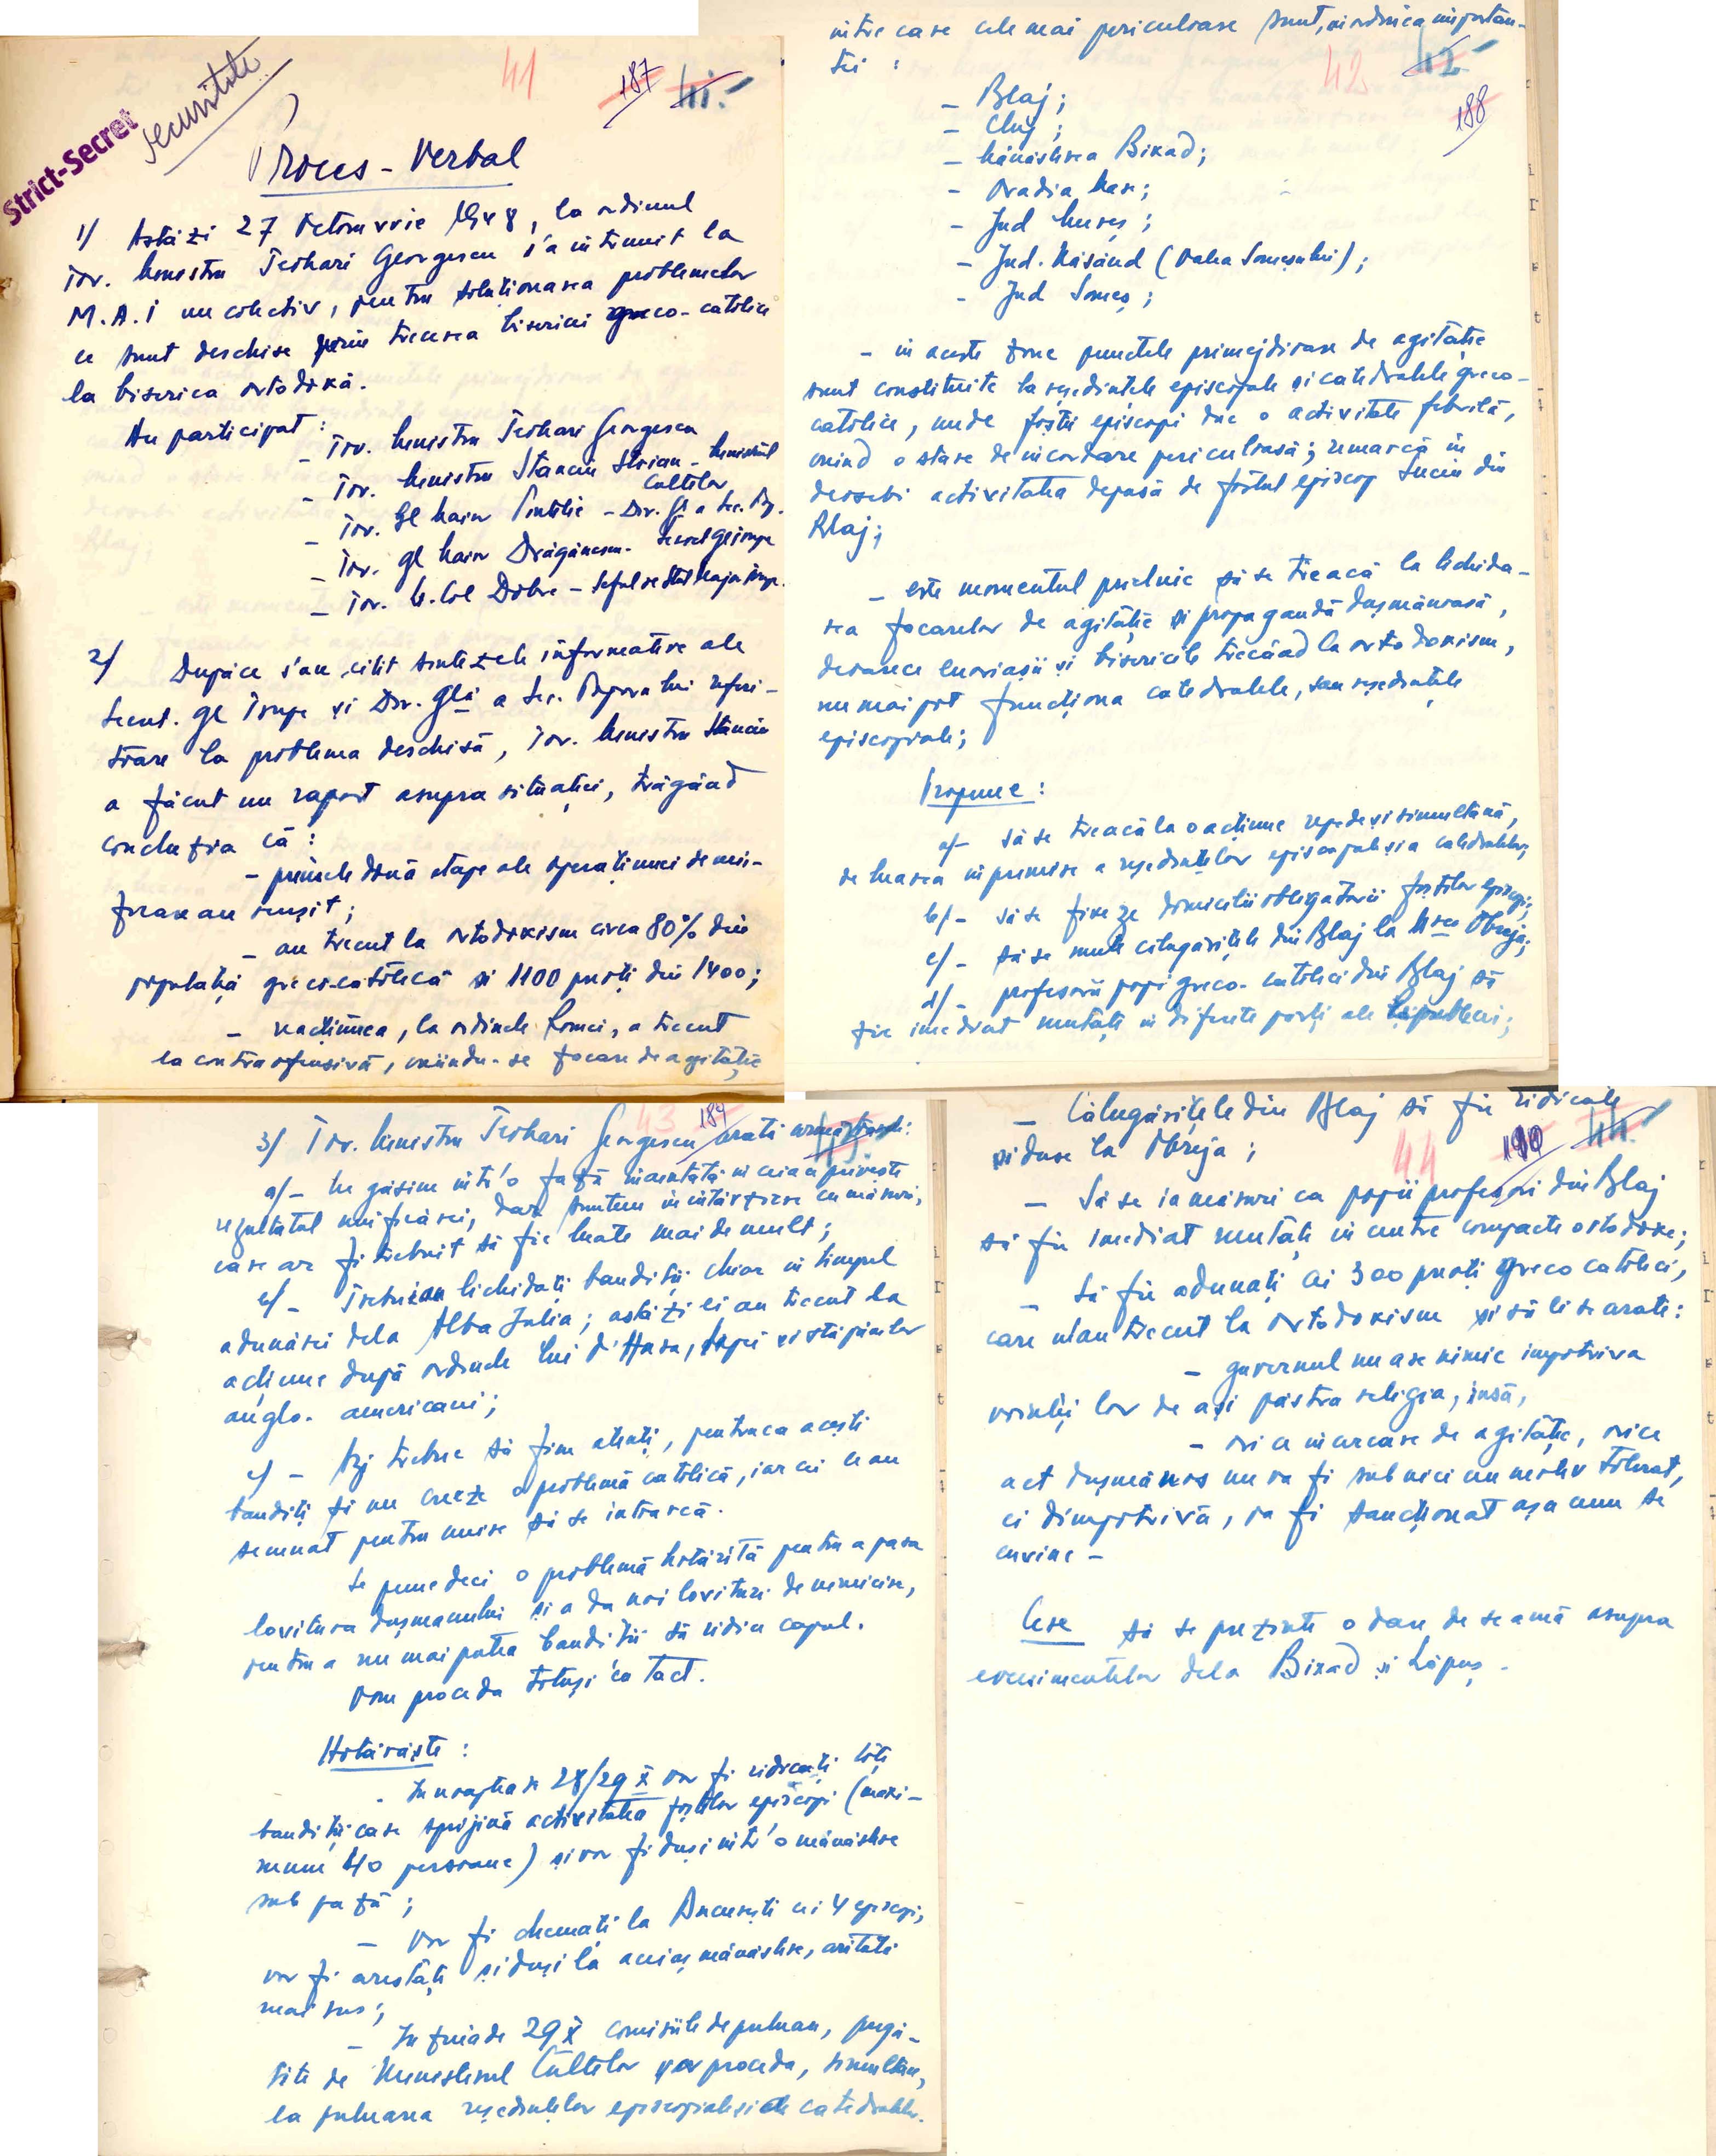 Strict-Secret
Securitate
41
187
41.
Proces-Verbal
1/ Astăzi 27 Octomvrie 1948, la ordinul
Tov. Ministru Teohari Georgescu s'a intrunit la
M.A.I un colectiv, pentru soluționarea problemelor
ce sunt deschise prin trecerea bisericii greco-catolice
la biserica ortodoxă.
Au participat :
- Tov. Ministru Teohari Georgescu
- Tov. Ministru Stanciu Stoian - Ministerul
Cultelor
- Tov. Gl Maior Pintilie - Dir. Gl a Sec. Pop.
- Tov. Gl Maior Drăgănescu -
- Tov. Lt. Col Dobre - Șeful
2/ După ce s'au citit sintezele informative ale
Secret. Gl Trupe și Dir. Glă a Sec. Poporului referi-
toare la problema deschisă, Tov. Ministru Stanciu
a făcut un raport asupra situației, trăgând
concluzia că :
- primele două etape ale operațiunei de uni-
ficare au reușit ;
- au trecut la ortodoxism circa 80% din
populația greco-catolică și 1100 preoți din 1400 ;
- reacțiunea, la ordinele Romei, a trecut
la contraofensivă, creându-se focare de agitație
intre care cele mai periculoase sunt, in ordinea importan-
tei :
42
42
188
- Blaj ;
- Cluj ;
- Mănăstirea Bixad ;
- Oradia Mare ;
- Jud Mureș ;
- Jud. Năsăud (Valea Someșului) ;
- Jud Someș ;
- in aceste zone punctele primejdioase de agitație
sunt constituite la reședintele episcopale și catedralele greco-
catolice, unde foștii episcopi duc o activitate febrilă,
creind o stare de incordare periculoasă ; remarcă in
deosebi activitatea depusă de fostul episcop Suciu din
Blaj ;
- este momentul prielnic să se treacă la lichida-
rea focarelor de agitație și propagandă dușmănoasă,
deoarece enoriașii și bisericile trecând la ortodoxism,
nu mai pot funcționa catedralele, sau reședintele
episcopale ;
Propune :
a/- să se treacă la o acțiune repede și simultană,
de luarea in primire a reședintelor episcopale și a catedralelor ;
b/- să se fixeze domicilii obligatorii foștilor episcopi ;
c/- să se mute călugărițele din Blaj la Mrea Obreja ;
d/- profesorii popi greco-catolici din Blaj să
fie imediat mutați in diferite părți ale Republicii ;
43
189
3/ Tov. Ministru Teohari Georgescu arată următoarele :
a/- Ne găsim intr'o fază inaintată in ceiace privește
rezultatul unificărei, dar suntem in intârziere cu măsuri,
care ar fi trebuit să fie luate mai de mult ;
b/- Trebuiau lichidați bandiții chiar in timpul
adunărei dela Alba Julia ; astăzi ei au trecut la
acțiune după ordinele lui O'Hara, Papei și stăpânilor
anglo-americani ;
c/- Azi trebue să fim atenți, pentruca acești
bandiți să nu creeze o problemă catolică, iar cei ce au
semnat pentru unire să se intoarcă.
Se pune deci o problemă hotărîtă pentru a para
lovitura dușmanului și a da noi lovituri de nimicire,
pentru a nu mai putea bandiții să ridice capul.
Vom proceda totuși cu tact.
Hotărăște :
- In noaptea de 28/29 X vor fi ridicați toți
bandiții care sprijină activitatea foștilor episcopi (maxi-
mum 40 persoane) și vor fi duși intr'o mănăstire
sub pază ;
- vor fi chemați la București cei 4 episcopi,
vor fi arestați și duși la aceiaș mănăstire, arătată
mai sus ;
- In ziua de 29 X comisiile de preluare, pregă-
tite de Ministerul Cultelor vor proceda, simultan,
la preluarea reședintelor episcopale și ale catedralelor.
- Călugărițele din Blaj să fie ridicate
și duse la Obreja ;
44
190
44.
- Să se ia măsuri ca popii profesori din Blaj
să fie imediat mutați in centre compacte ortodoxe ;
- Să fie adunați cei 300 preoți greco catolici,
care n'au trecut la ortodoxism și să li se arate :
- guvernul nu are nimic impotriva
voinței lor de a și păstra religia, insă,
- orice incercare de agitație, orice
act dușmănos nu va fi sub nici un motiv tolerat,
ci dimpotrivă, va fi sancționat așa cum se
cuvine -
Cere să se prezinte o dare de seamă asupra
evenimentelor dela Bixad și Lăpuș.